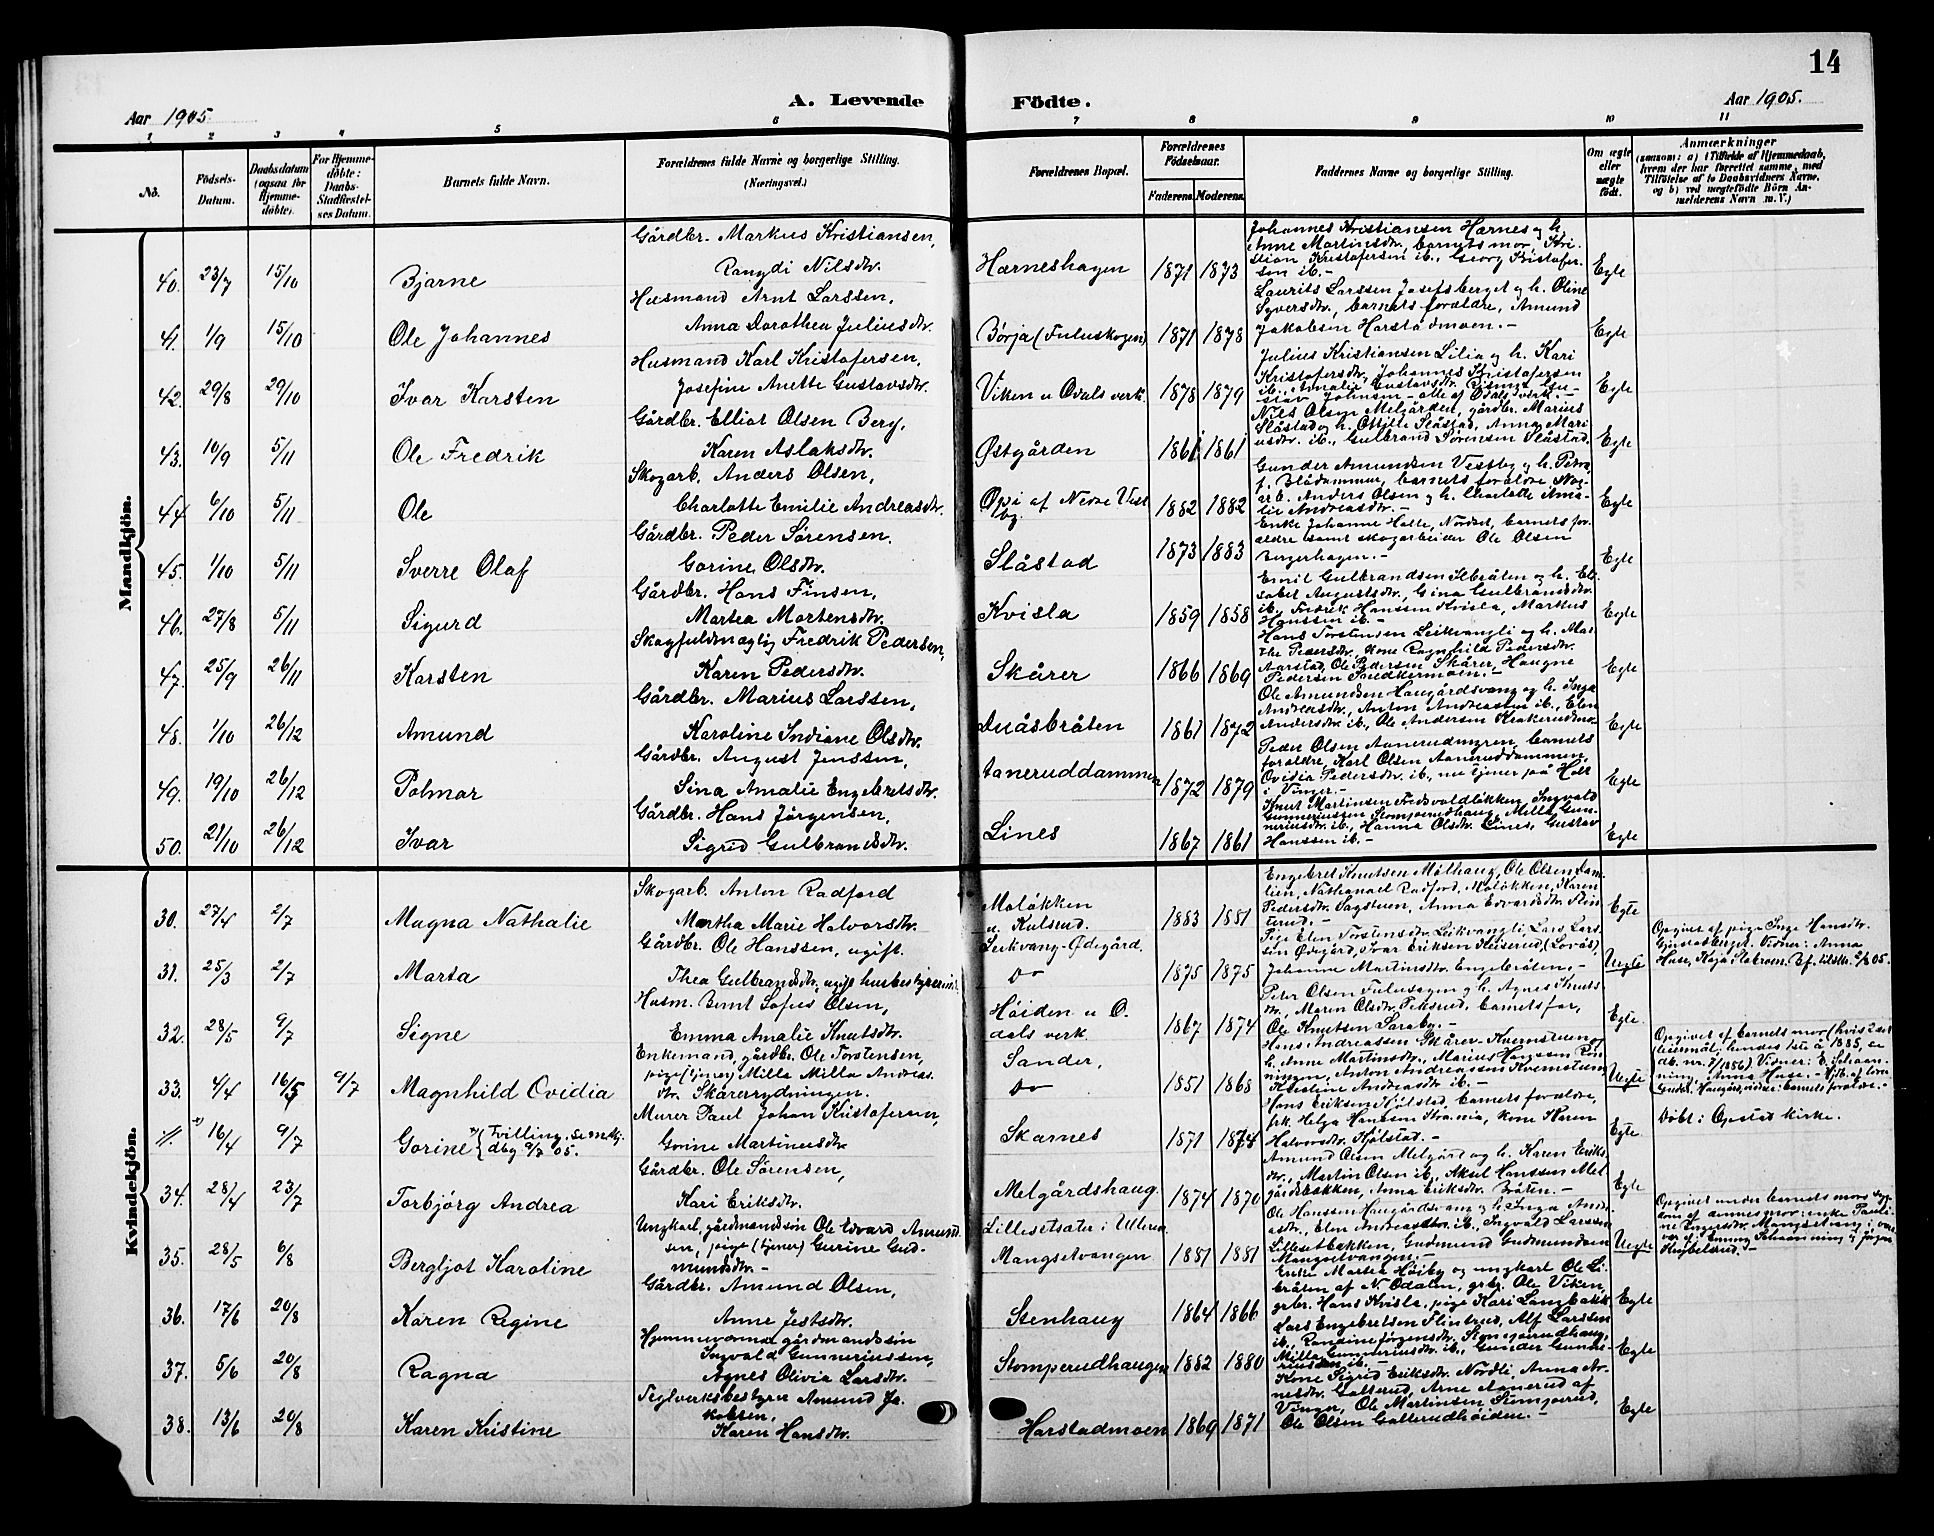 14
Aar 1905.
A. Levende Födte.
Aar 1905.
1 2 3 4 5 6 7 8 9 10 11
No.
Födsels-
Datum.
Daabsdatum
(ogsaa for
Hjemme-
döbte).
For Hjemme-
döbte:
Daabs-
Stadfæstel-
ses Datum.
Barnets fulde Navn.
Forældrenes fulde Navne og borgerlige Stilling.
(Næringsvei.)
Forældrenes Bopæl.
Forældrenes
Födselsaar.
Faderens. Moderens.
Faddernes Navne og borgerlige Stilling.
Om ægte
eller
uægte
født.
Anmærkninger
(saasom: a) i Tilfælde af Hjemmedaab,
hvem der har forrettet samme, med
Tilföielse af to Daabsvidners Navne,
og b) ved uægtefödte Börn An-
melderens Navn m. V.)
Mandkjön.
40. 23/7 15/10 Bjarne
Gårdbr. Markus Kristiansen,
Rangdi Nilsdtr.
Hærneshagen 1871 1873
Johannes Kristiansen Hærnes og h.
Anne Martinsdtr., barnets mor, Kri-
stian Kristofersen ib., Georg Kristofer-
sen ib.-
Egte
41. 1/9 15/10 Ole Johannes
Husmand Arnt Larssen,
Anna Dorothea Juliusdtr.
Børja (Fuluskogen) 1871 1878
Laurits Larssen Josefsberget og h. Oline
Syversdtr., barnets forældre, Amund
Jakobsen Harstadmoen.-
Egte
42. 29/8 29/10 Ivar Karsten
Husmand Karl Kristofersen,
Josefine Anette Gustavsdtr.
Viken u Odals verk. 1878 1879
Julius Kristiansen Lilia og h. Kari
Kristofersdtr., Johannes Kristofersen
ib., Amalie Gustavsdtr.
stav Johnsen - alle af Odals verk.-
Egte
43. 10/9 5/11 Ole Fredrik
Gårdbr. Elliot Olsen Berg,
Karen Aslaksdtr.
Østgården 1861 1861
Nils Olsen Melgården, gårdbr. Marius
Slåstad og h. Ottilie Slåstad, Anna Mari-
usdtr. ib., Gulbrand Sørensen Slåstad.
Egte
44. 6/10 5/11 Ole
Skogarb. Anders Olsen,
Charlotte Emilie Andreasdtr.
af Nedre Vest
by. 1882 1882
Gunder Amundsen Vestby og h. Petra
f. Blådammer, barnets forældre
arb. Anders Olsen og h. Charlotte Ama-
lie Andreasdtr.-
Egte
45. 1/10 5/11 Sverre Olaf
Gårdbr. Peder Sørensen.
Gorine Olsdtr.
Slåstad 1873 1883
Enke Johanne Holte, Nordset, barnets for-
ældre samt skogarbeider Ole Olsen
Bergerhagen.-
Egte
46. 27/8 5/11 Sigurd
Gårdbr. Hans Finsen,
Martea Mortensdtr.
Kvisla 1859 1858
Emil Gulbrandsen Ilbråten og h. El-
sabet Augustsdtr., Gina Gulbrandsdtr.
ib., Fredrik Hanssen Kvisla, Markus
Hanssen ib.-
Egte
47. 25/9 26/11 Karsten
Skogfuldmægtig Fredrik Pedersen,
Karen Pedersdtr.
Skårer 1866 1869
Hans Torstensen Leikvangli og h. Mar-
the Pedersdtr., kone Ragnhild Pedersdtr.
Aarstad, Ole Pedersen Skårer, Haagne
Pedersen Sandkermoen.-
Egte
48. 1/10 26/12 Amund
Gårdbr. Marius Larssen,
Karoline Indiane Olsdtr.
Duåsbråten 1861 1872
Ole Amundsen Haugårdsvang og h. Inga
Andreasdtr., Anton Andreassen ib., Elen
Andersdtr. ib., Ole Andersen
Egte
49. 19/10 26/12 Polmar
Gårdbr. August Jenssen,
Sina Amalie Engebretsdtr.
Aaneruddammen 1872 1879
Peder Olsen Aanerudmyren, barnets
forældre, Karl Olsen Aaneruddammen,
Ovidia Pedersdtr. ib., nu tjener på Holt
i Vinger.-
Egte
50. 21/10 26/12 Ivar
Gårdbr. Hans Jörgensen,
Sigrid Gulbrandsdtr.
Lines 1867 1861
Knut Martinsen Fredsvoldløkken, Ingvald
Gunneriussen Stomperudhaug, Milla Gun-
neriusdtr. ib., Hanna Olsdtr. Lines, Gustav
Hanssen ib.-
Egte
Kvindekjön.
30. 27/4 2/7 Magna Nathalie
Skogarb. Anton Radford
Martha Marie Halvorsdtr.
Moløkken
u. Kulsrud. 1883 1881
Engebret Knutsen Mølhaug, Ole Olsen Dam-
lien, Nathanael Radford, Moløkken, Karen
Pedersdtr. Sagstuen, Anna Edvardsdtr. Flin-
terud.-
Egte
31. 25/3 2/7 Marta
Gårdbr. Ole Hanssen, ugift.
Thea Gulbrandsdtr., ugift husbestyrerinde.
Leikvang-Ødegård.
Do 1875 1875
Pige Elen Torstensdtr. Leikvangli, Lars Lars-
sen Ødegård, Ivar Eriksen Huserud, (Lovås),
Johanne Martinsdtr. Engebråten.-
Uegte
Opgivet af pige Inge Hansdtr.
Gjustadberget. Vidner: Anna
Huse, Kaja Slebroen.
32. 28/5 9/7 Signe
Husm. Bernt Sofus Olsen,
Emma Amalie Knutsdtr.
Høiden u O-
dals verk 1867 1874
Peter Olsen Fuluskogen og h. Agnes Knuts-
dtr., Maren Olsdtr. Piksrud, barnets far,
Ole Knutsen Saraby.-
Egte.
33. 4/4 16/5 9/7 Magnhild Ovidia
Enkemand, gårdbr. Ole Torstensen,
pige (tjener) Milla Milla Andreas-
dtr. Skårerrydningen.
Sander,
Do 1851 1868
Hans Andreassen Skårer-Kvernstuen og
h. Anne Martinsdtr., Marius Hanssen Røn-
ningen, Anton Andreassen Kvernstuen
Kristine Andreasdtr. ib.-
Uegte
Opgivet af barnets mor (hvis 2det
leiermål; hendes 1ste i 1885, se
db. nr. 7/1856) Vidner: E. Schaan-
ning, Anna Huse.-
16/4 9/7 Gorine
Tvilling. Se
dbg 9/7 05.
Murer Paul Johan Kristofersen,
Gorine Martinusdtr.
Skarnes 1871 1874
Hans Eriksen Kjølstad, barnets forældre,
frk Helga Hanssen Strania, kone Karen
Halvorsdtr. Kjølstad.-
Egte.
Döbt i Opstad kirke.
34. 28/4 23/7 Torbjörg Andrea
Gårdbr. Ole Sørensen,
Kari Eriksdtr.
Melgårdshaug. 1874 1870
Amund Olsen Melgård og h. Karen Eriks-
dtr., Martin Olsen ib., Aksel Hanssen Mel-
gårdsbakken, Anna Eriksdtr. Bråten.-
Egte
35. 28/5 6/8 Bergljot Karoline
Ungkarl, gårdmandssøn Ole Edvard Amund-
sen, pige (tjener) Gurine Gud-
mundsdtr.-
Lillesetsæter i Ulleren
Mangsetvangen 1881 1881
Ole Hanssen Haugårdsvang og h. Inga Andre-
asdtr., Elen Andreasdtr. ib., Ingvald Larssen
Lillesetbakken, Gudmund Gudmundsen
Mangsetvangen.-
Uegte
Opgivet under barnets mors syg-
dom af annes mor: enke Pauli-
ne Engersdtr. Mangsetvang i nær-
vær af Emmy Schaanning & Jørgen
36. 17/6 20/8 Karen Regine
Gårdbr. Amund Olsen,
Anne Jestsdtr.
Stenhaug 1864 1866
Enke Martea Høiby og ungkarl Ole Li-
bråten af N. Odalen, grbr. Ole Viken,
grbr. Hans Kvisle, pige Kari Langbakk
Egte
37. 5/6 20/8 Ragna
Hjemmeværende gårdmandssön
Ingvald Gunneriussen,
Agnes Olivia Larsdtr.
Stomperudhaugen 1882 1880
Lars Engebretsen Flintrud, Alf Larssen
ib., Randine Jørgensdtr. Stomperudhaug,
Milla Gunneriusdtr. ib., Gunder Gunne-
riussen ib.-
Egte
38. 13/6 20/8 Karen Kristine
Teglverksbestyrer Amund Ja-
kobsen,
Karen Hansdtr.
Harstadmoen 1869 1871
Kone Sigrid Eriksdtr. Nordli, Anna Ar-
nesdtr. Galterud, Arne Aanerud af
Vinger, Ole Martinsen Stomperud,
Ole Olsen Galterudhøiden.-
Egte